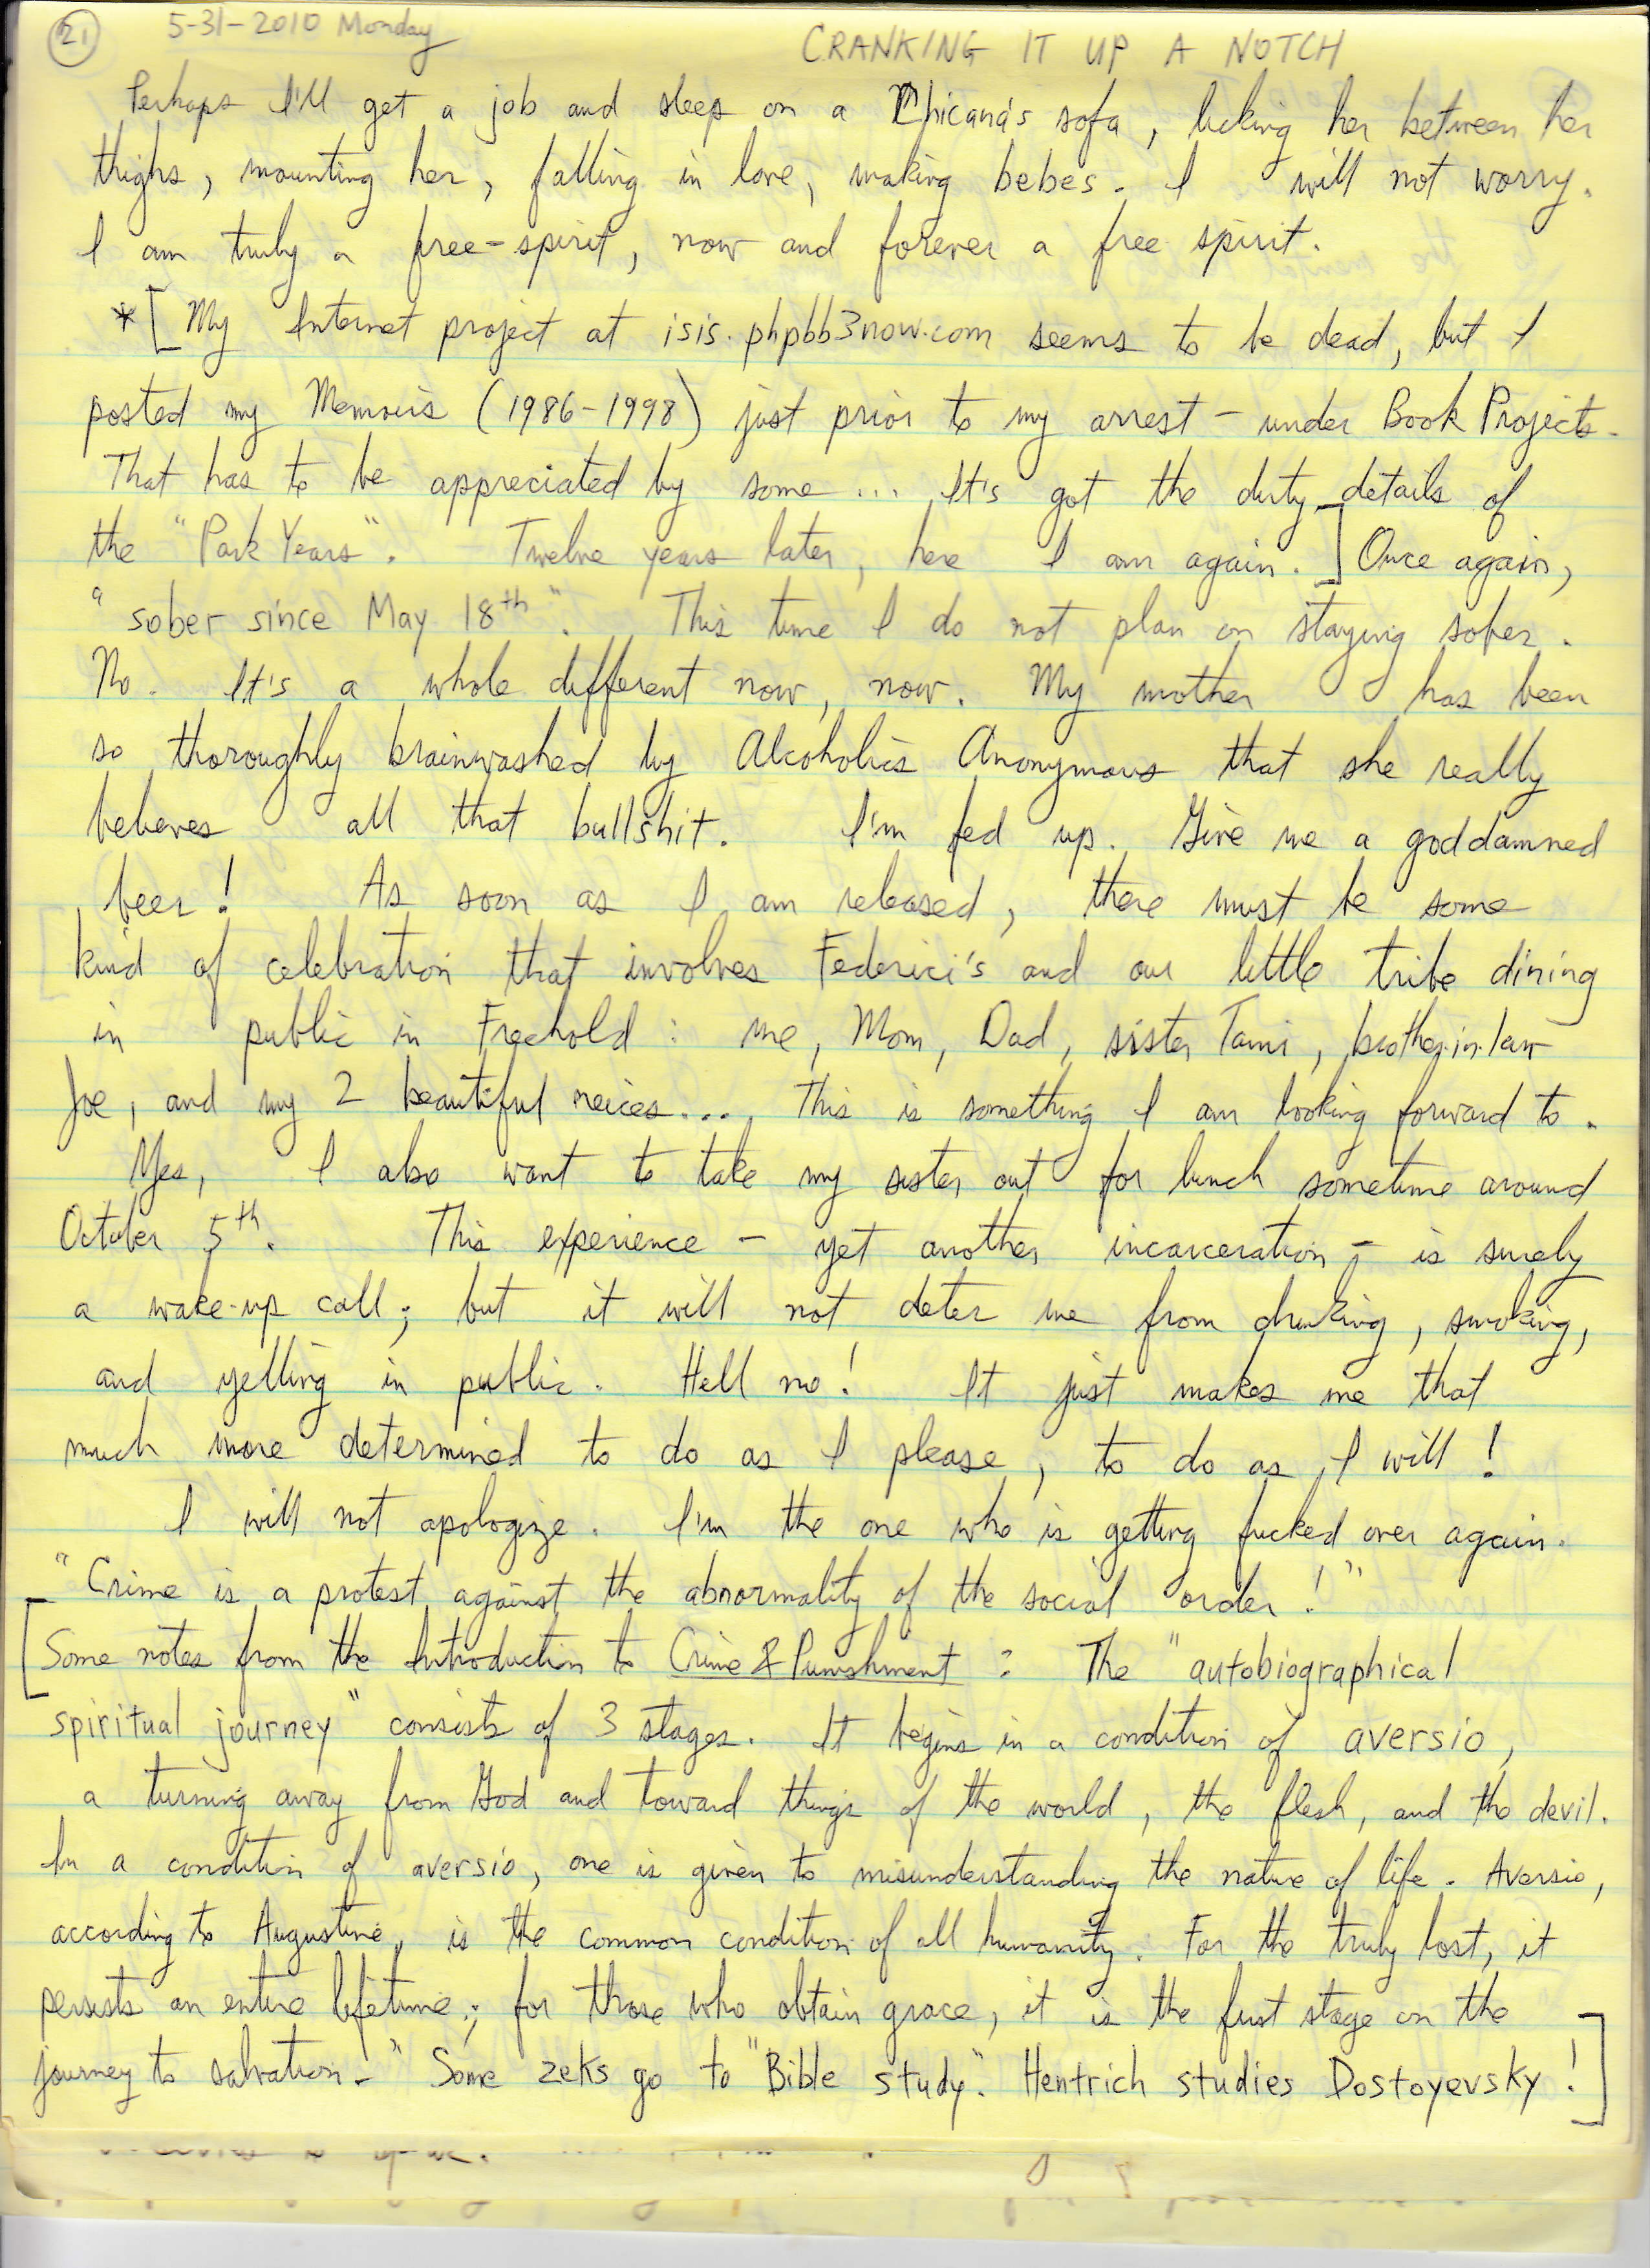 21 5-31-2010 Monday CRANKING IT UP A NOTCH
Perhaps I'll get a job and sleep on a Chicana's sofa, licking her between her
thighs, mounting her, falling in love, making bebes. I will not worry.
I am truly a free-spirit, now and forever a free spirit.
*[My Internet project at isis.phpbb3now.com seems to be dead, but I
posted my Memoirs (1986-1998) just prior to my arrest – under Book Projects.
That has to be appreciated by some ... It's got the dirty details of
the "Park Years". Twelve years later, here I am again.] Once again,
"sober since May 18th". This time I do not plan on staying sober.
No. It's a whole different now, now. My mother has been
so thoroughly brainwashed by Alcoholics Anonymous that she really
believes all that bullshit. I'm fed up. Give me a goddamned
beer! As soon as I am released, there must be some
kind of celebration that involves Federici's and our little tribe dining
in public in Freehold: me, Mom, Dad, sister Tami, brother-in-law
Joe, and my 2 beautiful neices.... This is something I am looking forward to.
Yes, I also want to take my sister out for lunch sometime around
October 5th. This experience – yet another incarceration – is surely
a wake-up call; but it will not deter me from drinking, smoking,
and yelling in public. Hell no! It just makes me that
much more determined to do as I please, to do as I will!
I will not apologize. I'm the one who is getting fucked over again.
"Crime is a protest against the abnormality of the social order!"
[Some notes from the Introduction to Crime & Punishment: The "autobiographical
spiritual journey" consists of 3 stages. It begins in a condition of aversio,
a turning away from God and toward things of the world, the flesh, and the devil.
In a condition of aversio, one is given to misunderstanding the nature of life. Aversio,
according to Augustine, is the common condition of all humanity. For the truly lost, it
persists an entire lifetime; for those who obtain grace, it is the first stage on the
journey to salvation." Some zeks go to "Bible study". Hentrich studies Dostoyevsky!]